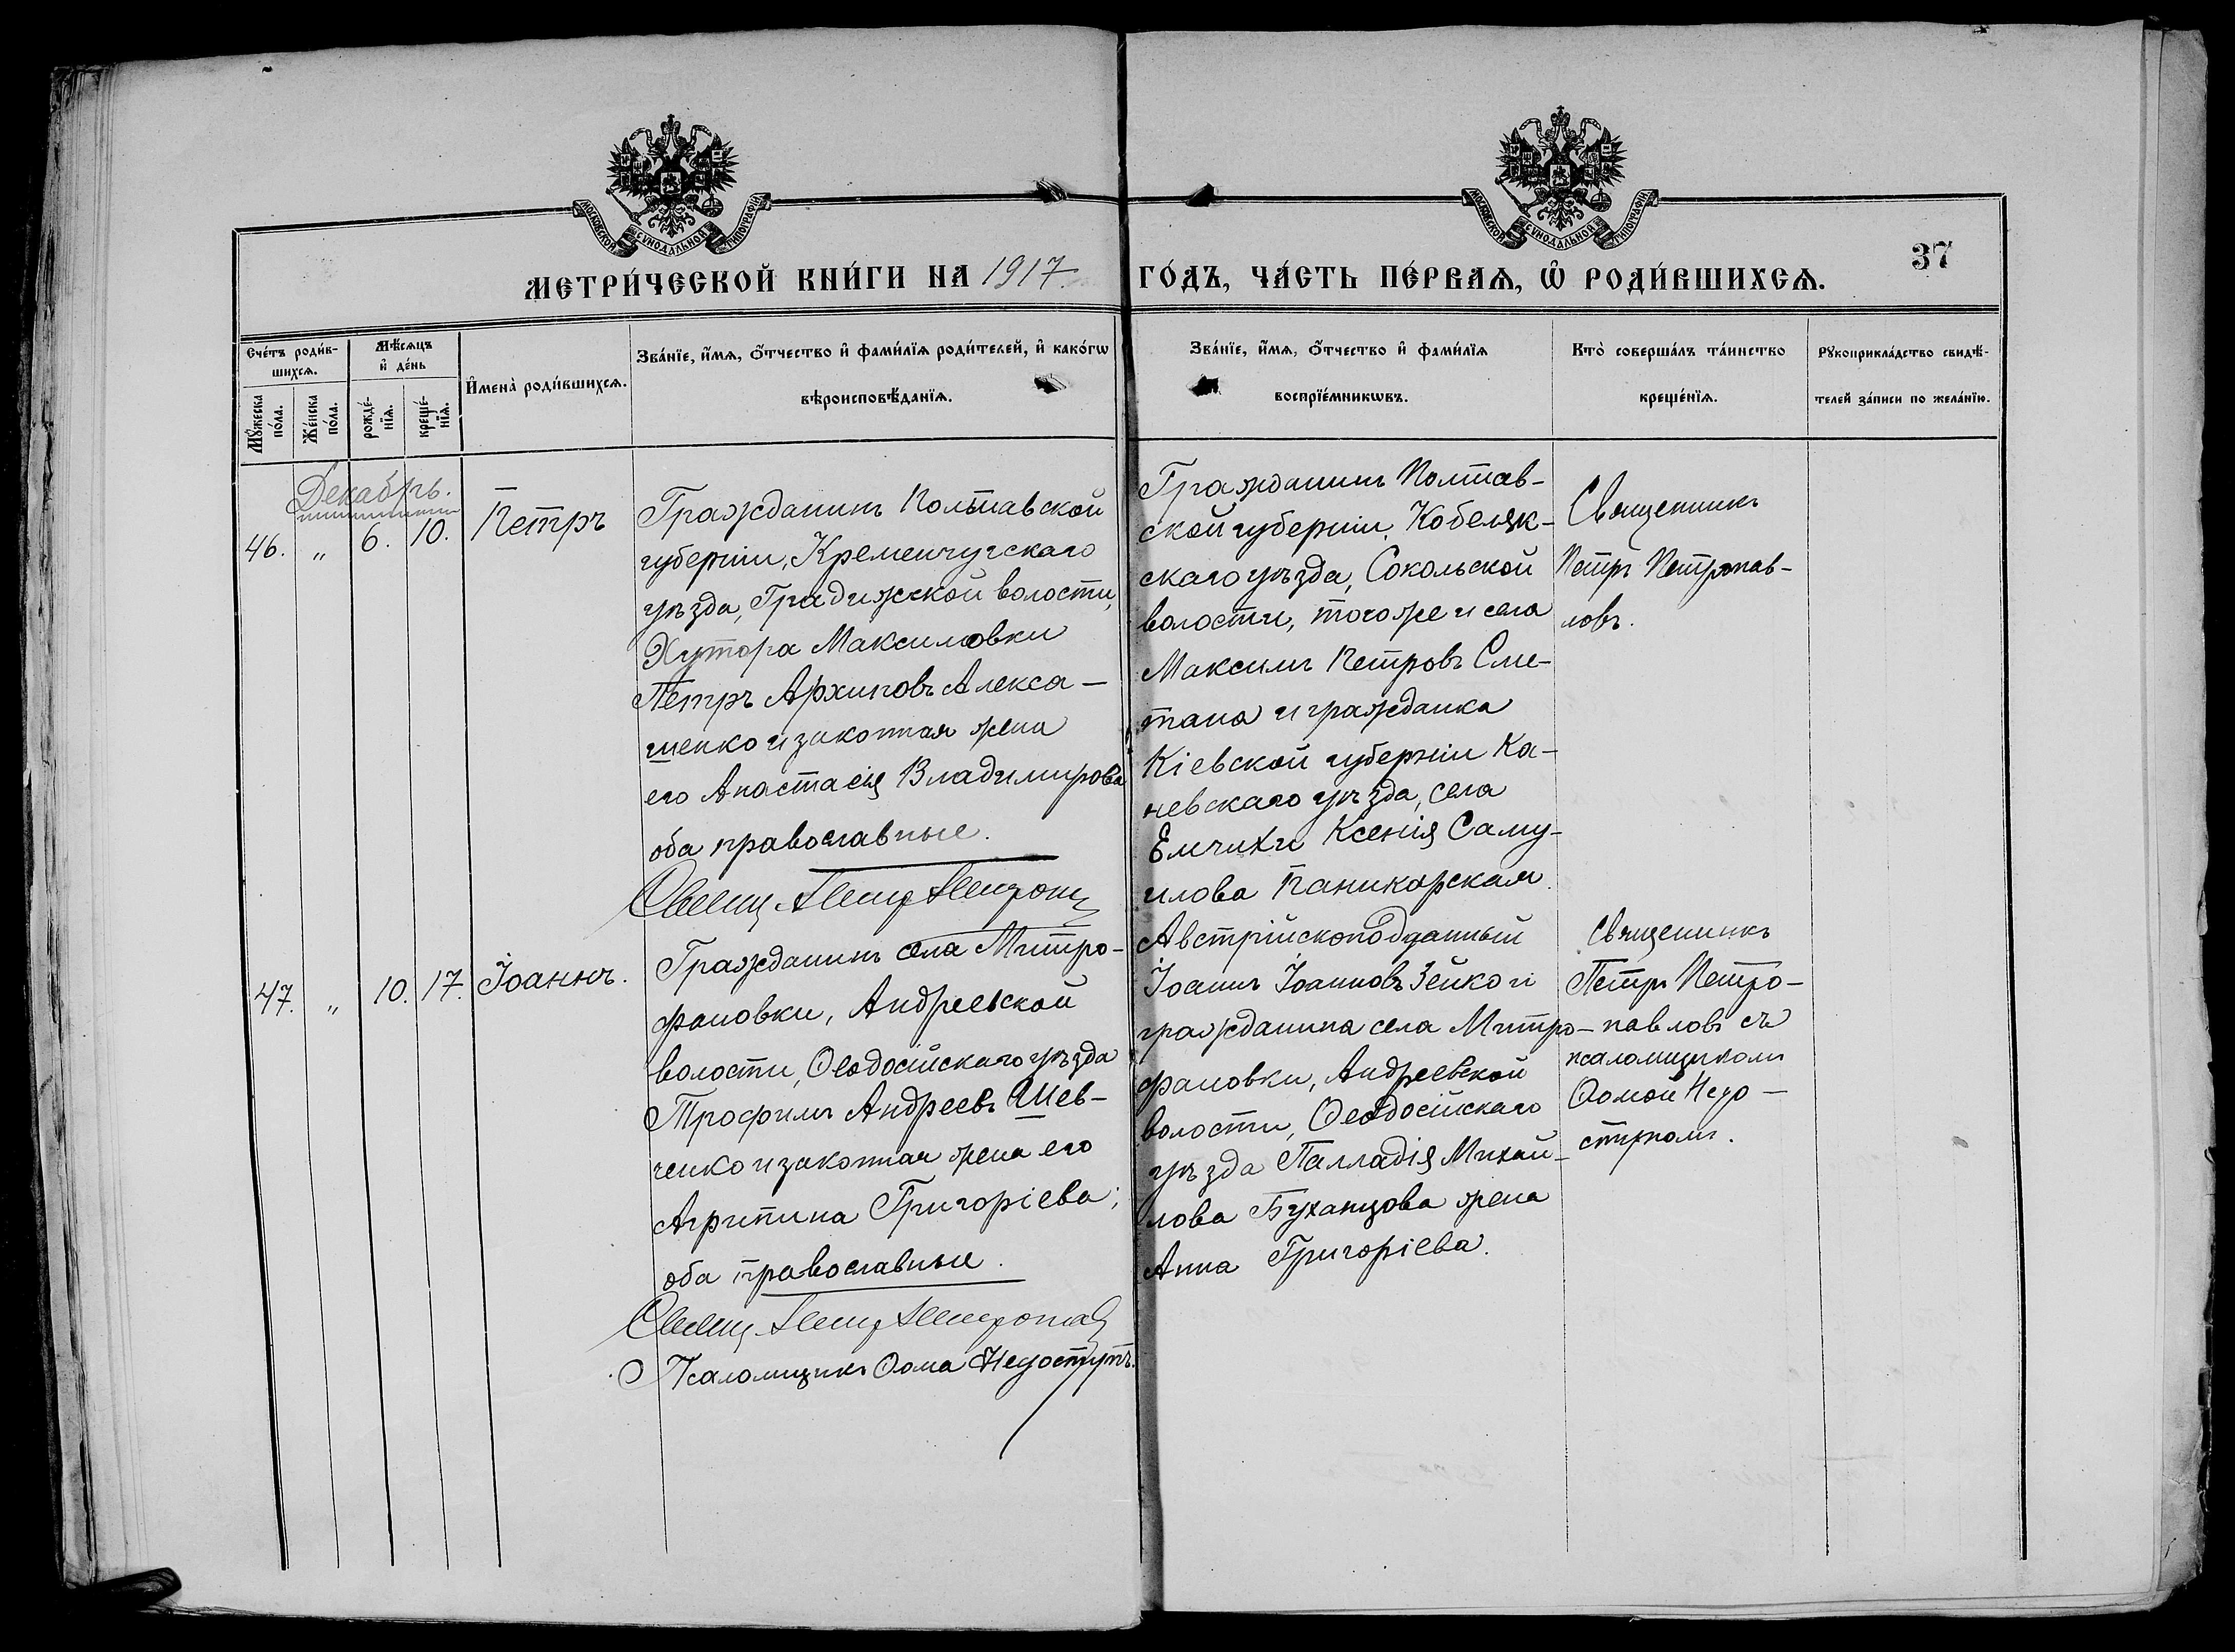 МОСКОВСКОЙ СѴНОДАЛЬНОЙ ТИПОГРАФІИ
МОСКОВСКОЙ СѴНОДАЛЬНОЙ ТИПОГРАФІИ
37
МЕТРИ́ЧЕСКОЙ КНИ́ГИ НА 1917 ГО́ДЪ, ЧА́СТЬ ПЕ́РВАѦ, Ѡ҆ РОДИ́ВШИХСѦ.
Сче́тъ роди́в-
шихсѧ.
Мꙋ́жеска
по́ла.
Же́нска
по́ла.
Мѣ́сѧцъ
и҆ де́нь
рожде́-
нїѧ.
креще́-
нїѧ.
И҆мена̀ роди́вшихсѧ.
Зва́нїе, и҆́мѧ, ѻ҆́тчество и҆ фами́лїѧ роди́телей, и҆ како́гѡ
вѣроисповѣ́данїѧ.
Зва́нїе, и҆́мѧ, ѻ҆́тчество и҆ фами́лїѧ
воспрїе́мникѡвъ.
Кто̀ соверша́лъ та́инство
креще́нїѧ.
Рꙋкоприкла́дство свидѣ́-
телей за́писи по жела́нїю.
Декабрь.
46. „ 6. 10. Петръ
Гражданинъ Полтавской
губерніи, Кременчугскаго
уѣзда, Градижской волости,
Хутора Максимовки
Петръ Архиповъ Алекса-
шенко и законная жена
его Анастасія Владимірова
оба православные.
Свящ. Петр Петропав
Гражданинъ Полтав-
ской губерніи, Кобеляк-
скаго уѣзда, Сокольской
волости, того же и села
Максимъ Петровъ Сме-
тана и гражданка
Кіевской губерніи Ка-
невскаго уѣзда, села
Емчихи Ксенія Саму-
илова Паникарская.
Священникъ
Петръ Петропав-
ловъ.
47. „ 10. 17. Іоаннъ.
Гражданинъ села Митро-
фановки, Андреевской
волости, Ѳеодосійскаго уѣзда
Трофимъ Андреевъ Шев-
ченко и законная жена его
Агрипина Григоріева;
оба православные.
Свящ. Петр Петропав
Псаломщикъ Ѳома Недоступъ.
Австрійскоподданный
Іоаннъ Іоанновъ Зейко и
гражданина села Митро-
фановки, Андреевской
волости, Ѳеодосійскаго
уѣзда Палладія Михай-
лова Буханцова жена
Анна Григоріева.
Священникъ
Петръ Петро-
павловъ съ
псаломщикомъ
Ѳомой Недо-
ступомъ.